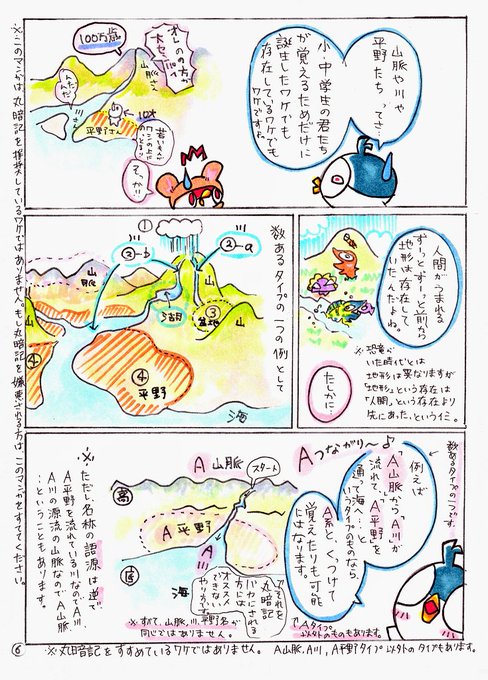 山脈や川や
平野たちってさ…
小・中学生の君たち
が覚えるためだけに
誕生したワケでも
存在しているワケでも
ないワケですね。
オレの方が
100万歳
山脈さん
平野さん
10才
若いもんが
そっか!!
人間がうまれる
ずーっとずーっと前から
地形は存在して
いたんだよね。
※恐竜が
いた時代とは
地形は異なりますが
「地形」という存在は
「人間」という存在より
先にあった、というイミ。
たしかに…
数あるタイプの一つの例として
①
②-a
②-b
山脈
山
湖
③
盆地
山
④
④
平野
海
数あるタイプの一つです
例えば
「A山脈」から、「A川」が
流れて、「A平野」を
通って海へ…と
いうタイプのものなら、
A系と、くっつけて
覚えたりも可能
にはなります。
Aつながり〜♪
※Aタイプ
以外のものもあります。
スタート
A山脈
高
A平野
A川
低
海
でもそれを
丸暗記
オススメ
できない
やり方です
※すべて、山脈、川、平野名が
同じではありません。
※ただし名称の語源は逆で
A平野を流れている川なのでA川、
A川の源流の山脈なのでA山脈
…ということもあります。
※このマンガは、丸暗記を推奨しているワケではありません。もし丸暗記を嫌悪される方は、このマンガをすてください。
⑥
※丸暗記をすすめているワケではありません。 A山脈、A川、A平野タイプ以外のタイプもあります。